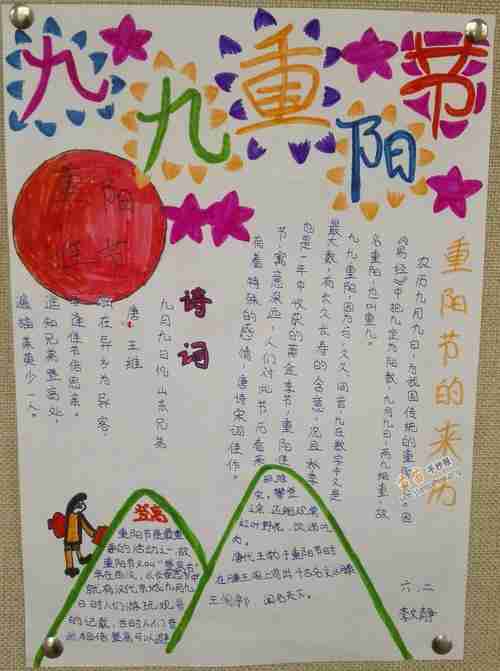 九九重阳节
重阳佳节
重阳节的来历
农历九月九日，为我国传统的重阳节。因
《易经》中把九定为阳数，九月九日，两九相重，故
名重阳，也叫重九。
九九重阳，因为与"久久"同音，九在数字中又是
最大数，有长久长寿的含意，况且秋季
也是一年中收获的黄金季节，重阳佳
节，寓意深远，人们对此节历来
有着特殊的感情，唐诗宋词佳作。
诗词
九月九日忆山东兄弟
唐 王维
独在异乡为异客
每逢佳节倍思亲。
遥知兄弟登高处，
遍插茱萸少一人。
登高
重阳节是最重
要的活动之一，故
重阳节又叫"登高节"
就有汉代京城九月九
日时人们游玩观景
的记载，
登高可以避
红叶野花，
唐代王勃于重阳节时
在滕王阁上
王阁序 闻名天下。
六.二
李文静